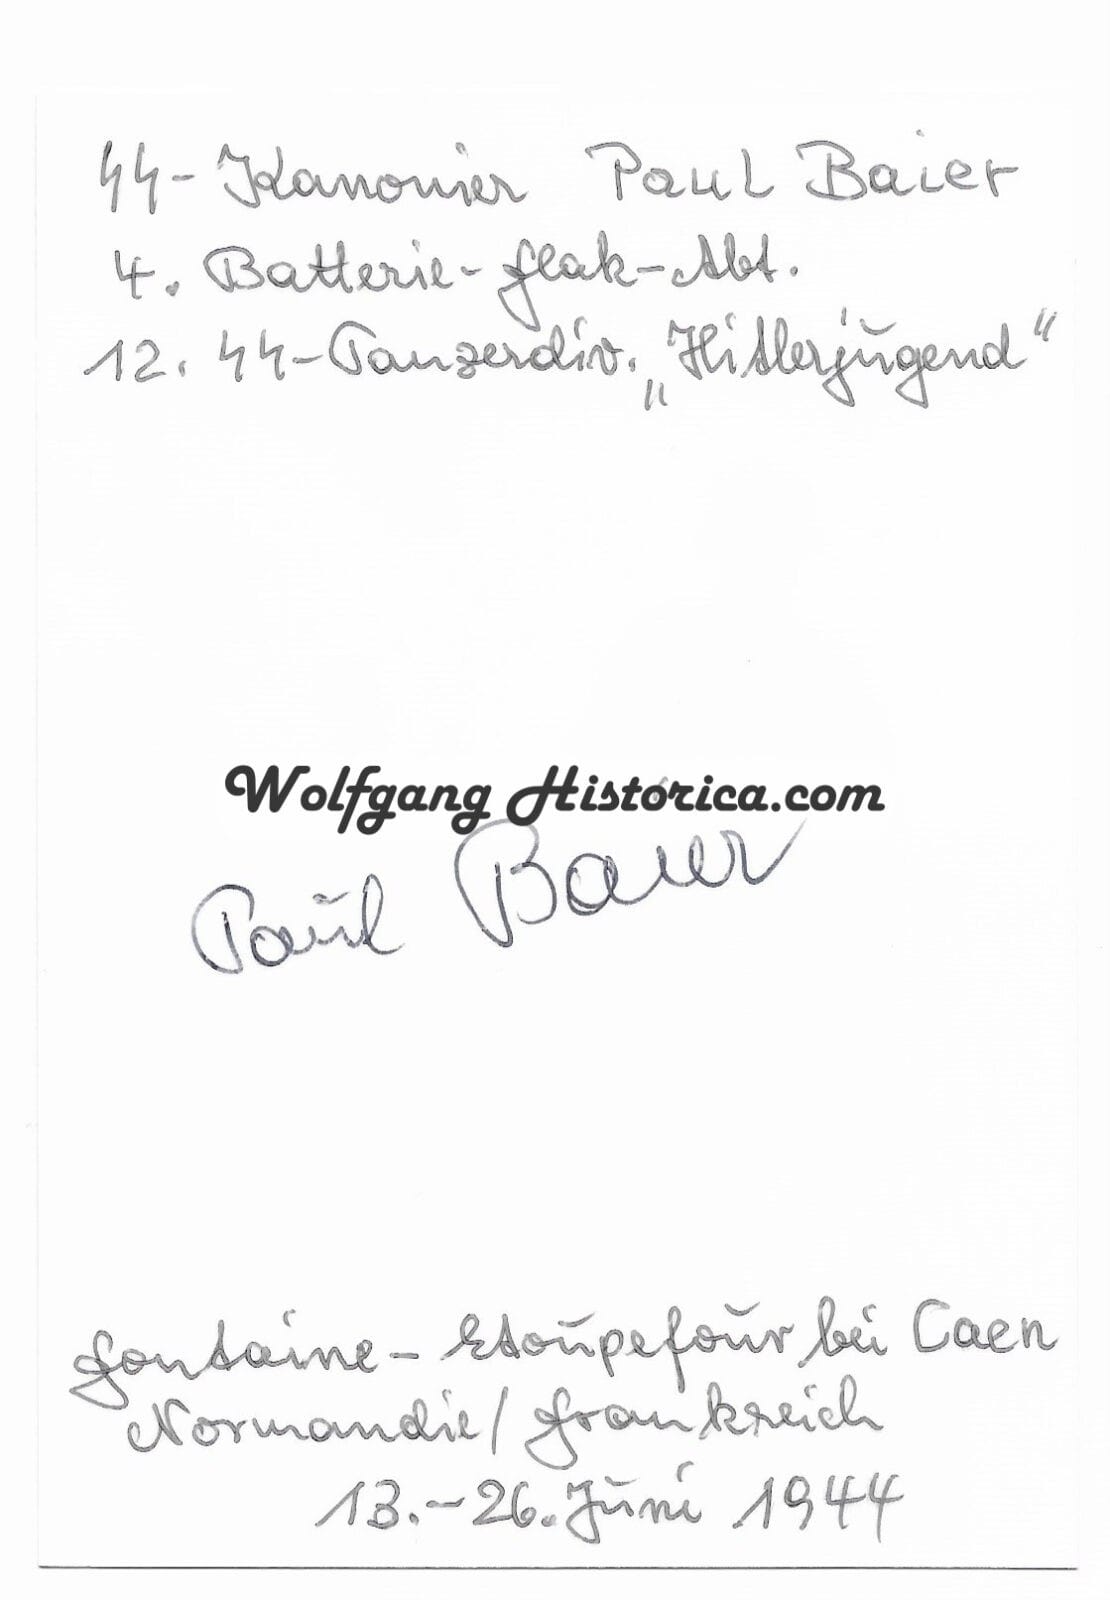 SS-Kanonier Paul Baier
4. Batterie-Flak-Abt.
12. SS-Panzerdiv. „Hitlerjugend“
Wolfgang Historica.com
Paul Baier
Fontaine-Etoupefour bei Caen
Normandie/Frankreich
13.-26. Juni 1944